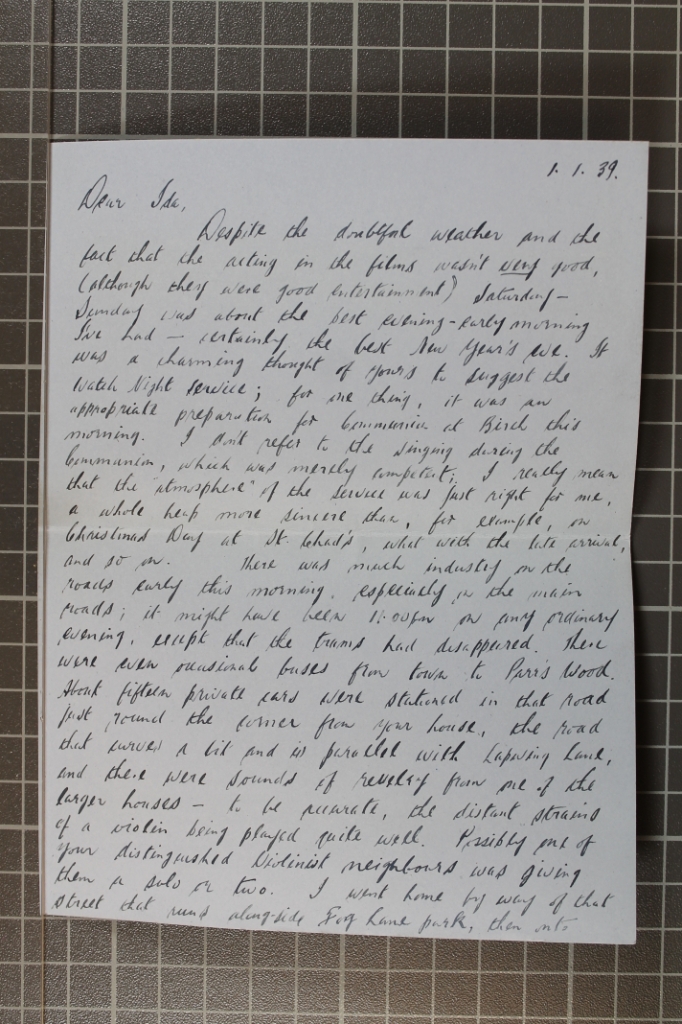 1. 1. 39.
Dear Ida,
Despite the doubtful weather and the
fact that the acting in the films wasn't very good,
(although they were good entertainment) Saturday -
Sunday was about the best evening - early morning
I've had - certainly the best New Year's eve. It
was a charming thought of yours to suggest the
Watch Night Service; for one thing, it was an
appropriate preparation for Communion at Birch this
morning. I don't refer to the singing during the
Communion, which was merely competent; I really mean
that the "atmosphere" of the service was just right for me,
a whole heap more sincere than, for example, on
Christmas Day at St. Chad's, what with the late arrival,
and so on. There was much industry on the
roads early this morning, especially on the main
roads; it might have been 11.00pm on any ordinary
evening, except that the trams had disappeared. There
were even occasional buses from town to Parrs Wood.
About fifteen private cars were stationed in that road
just round the corner from your house, the road
that curves a bit and is parallel with Lapwing Lane,
and there were sounds of revelry from one of the
larger houses - to be accurate, the distant strains
of a violin being played quite well. Possibly one of
your distinguished Violinist neighbours was giving
them a solo or two. I went home by way of that
street that runs along-side Fog Lane park, then onto